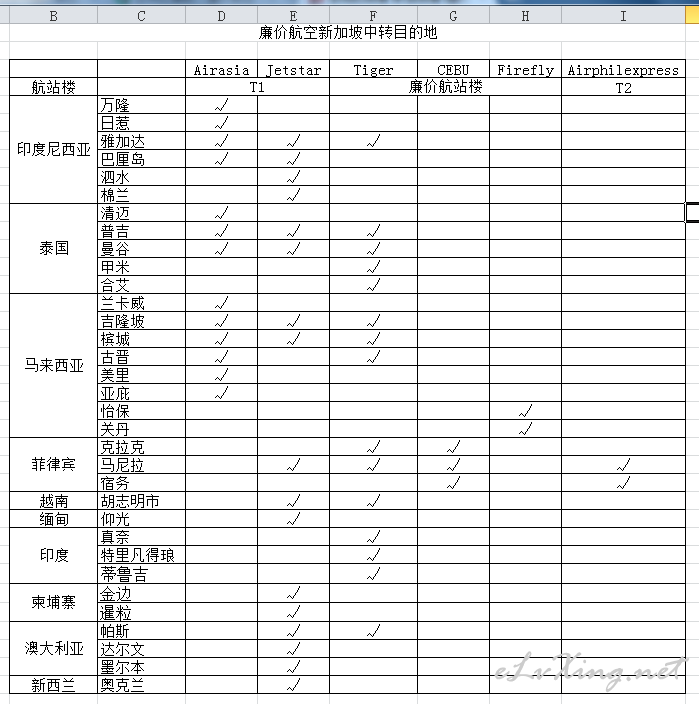 B C D E F G H I
廉价航空新加坡中转目的地
Airasia Jetstar Tiger CEBU Firefly Airphilexpress
航站楼 T1 廉价航站楼 T2
印度尼西亚
万隆 √
日惹 √
雅加达 √ √ √
巴厘岛 √ √
泗水 √
棉兰 √
泰国
清迈 √
普吉 √ √ √
曼谷 √ √ √
甲米 √
合艾 √
马来西亚
兰卡威 √
吉隆坡 √ √ √
槟城 √ √ √
古晋 √ √
美里 √
亚庇 √
怡保 √
关丹 √
菲律宾
克拉克 √ √
马尼拉 √ √ √ √
宿务 √ √
越南 胡志明市 √ √
缅甸 仰光 √
印度
真奈 √
特里凡得琅 √
蒂鲁吉 √
柬埔寨
金边 √
暹粒 √
澳大利亚
帕斯 √ √
达尔文 √
墨尔本 √
新西兰 奥克兰 √
eLvXing.net